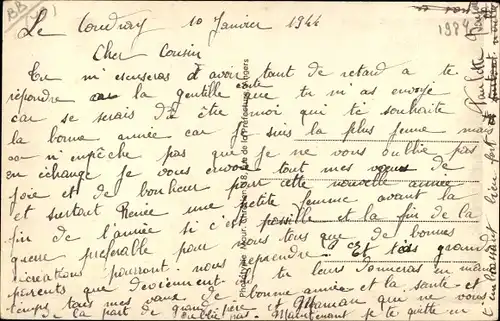 Le Coudray 10 Janvier 1944
Cher Cousin
Tu m'excuseras d'avoir tant de retard a te
répondre a la gentille carte que tu m'as envoyé
car se serais da être moi qui te souhaite
la bonne année car je suis la plus jeune mais
n'empêche pas que je ne vous oublie pas
en échange je vous envoie tout mes vœux de
joie et de bonheur pour cette nouvelle année
et surtout Renée une petite femme avant la
fin de l'année si c'est possible et la fin de la
guerre préférable pour nous tous que de bonnes
récréations pourront nous reprendre. Et tes grands
parents que deviennent-ils tu leur donneras en même
temps tous mes vœux de bonne année et la santé et
de la part de grand père et Maman qui ne vous
oublie pas. Maintenant je te quitte en
t'embrassant bien fort
Paulette
1984
Phototypie
8, rue de la Préfecture, Angers